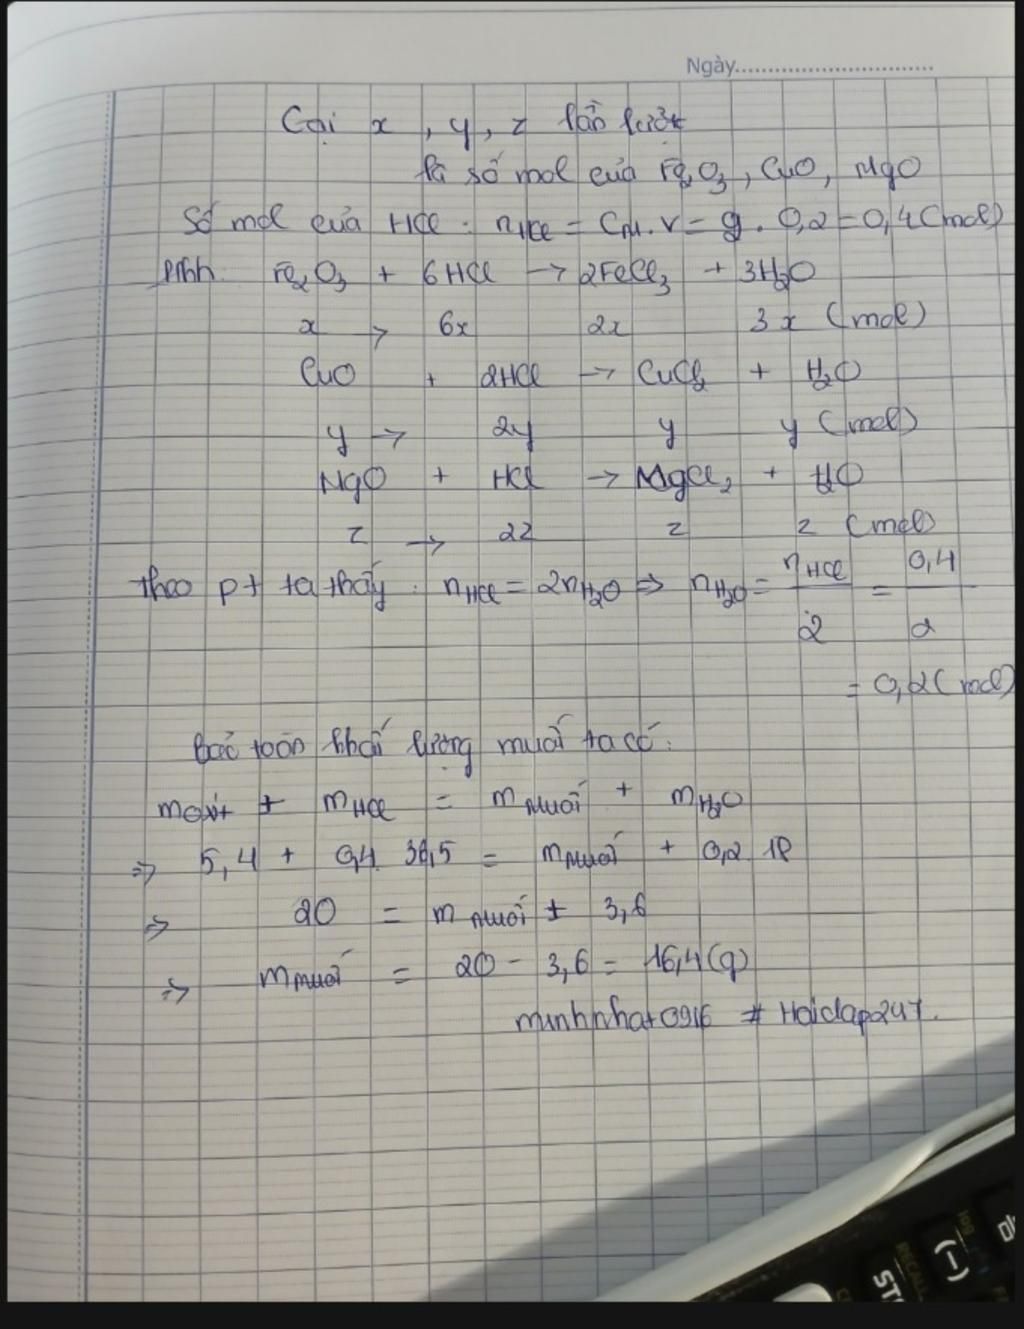 Ngày
Gọi x, y, z lần lượt
là số mol của Fe2O3, CuO, MgO
Số mol của HCl : nHCl = CM.V = 2. 0,2 = 0,4 (mol)
Pthh: Fe2O3 + 6HCl → 2FeCl3 + 3H2O
x → 6x 2x 3x (mol)
CuO + 2HCl → CuCl2 + H2O
y → 2y y y (mol)
MgO + HCl → MgCl2 + H2O
z → 2z z z (mol)
theo pt ta thấy : nHCl = 2nH2O ⇒ nH2O = nHCl / 2 = 0,4 / 2
= 0,2 (mol)
bảo toàn khối lượng muối ta có:
m oxit + mHCl = m muối + mH2O
⇒ 5,4 + 0,4 36,5 = m muối + 0,2 18
⇒ 20 = m muối + 3,6
⇒ m muối = 20 - 3,6 = 16,4 (g)
minhnhat0916 # Hoidap247.
log
(-)
RECALL